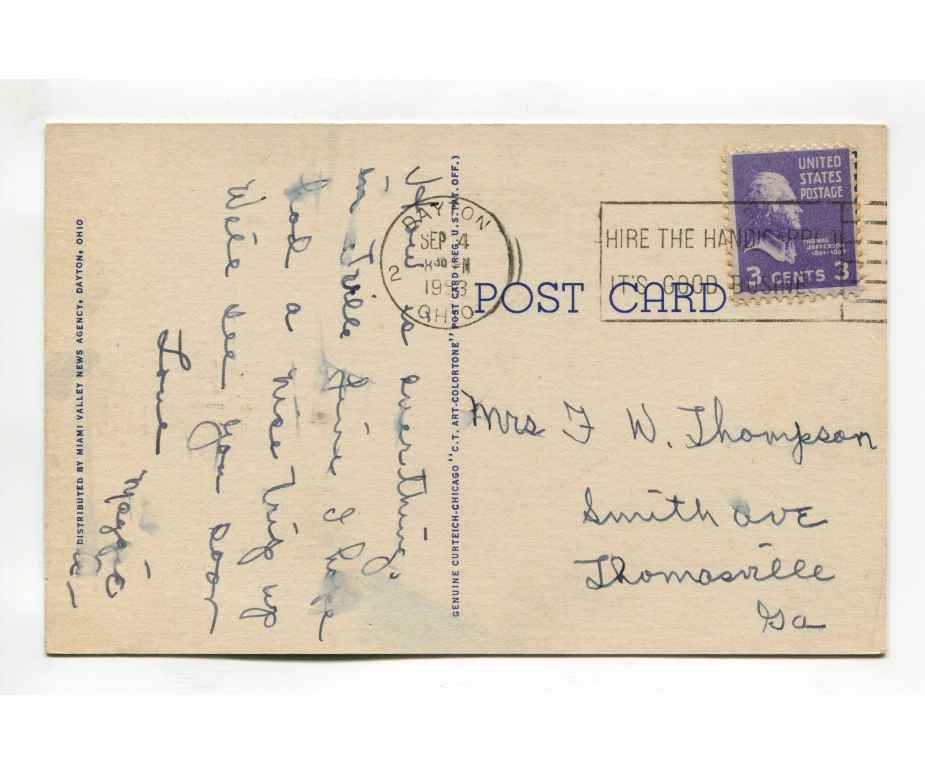 How is everthing
in Tville fine I hope
had a nice trip up
Will see you soon
Love
Maggie
DISTRIBUTED BY MIAMI VALLEY NEWS AGENCY, DAYTON, OHIO
GENUINE CURTEICH-CHICAGO "C.T. ART-COLORTONE" POST CARD (REG. U.S. PAT. OFF.)
DAYTON
SEP 4
1953
2
OHIO
HIRE THE HANDICAPPED
IT'S GOOD BUSINESS
UNITED
STATES
POSTAGE
THOMAS
JEFFERSON
3 CENTS 3
POST CARD
Mrs F W. Thompson
Smith ave
Thomasville
Ga